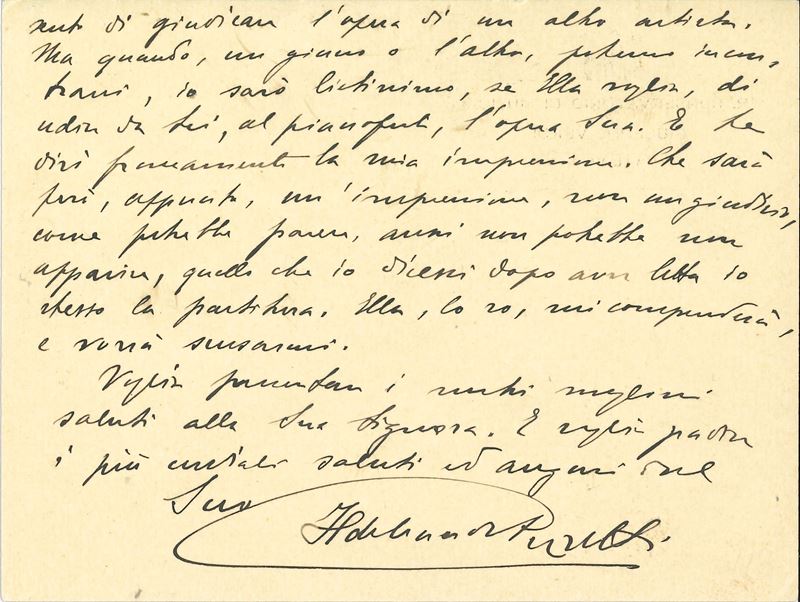 nuto di giudicare l'opera di un altro artista.
Ma quando, un giorno o l'altro, potremo incon-
trarci, io sarò lietissimo, se Ella voglia, di
udire da Lei, al pianoforte, l'opera Sua. E Le
dirò francamente la mia impressione. Che sarà
però, appunto, un'impressione, non un giudizio,
come potrebbe parere, anzi non potrebbe non
apparire, quello che io dicessi dopo aver letta io
stesso la partitura. Ella, lo so, mi comprenderà,
e vorrà scusarmi.
Voglia presentare i nostri migliori
saluti alla Sua Signora. E voglia gradire
i più cordiali saluti ed auguri del
Suo
Ildebrando Pizzetti